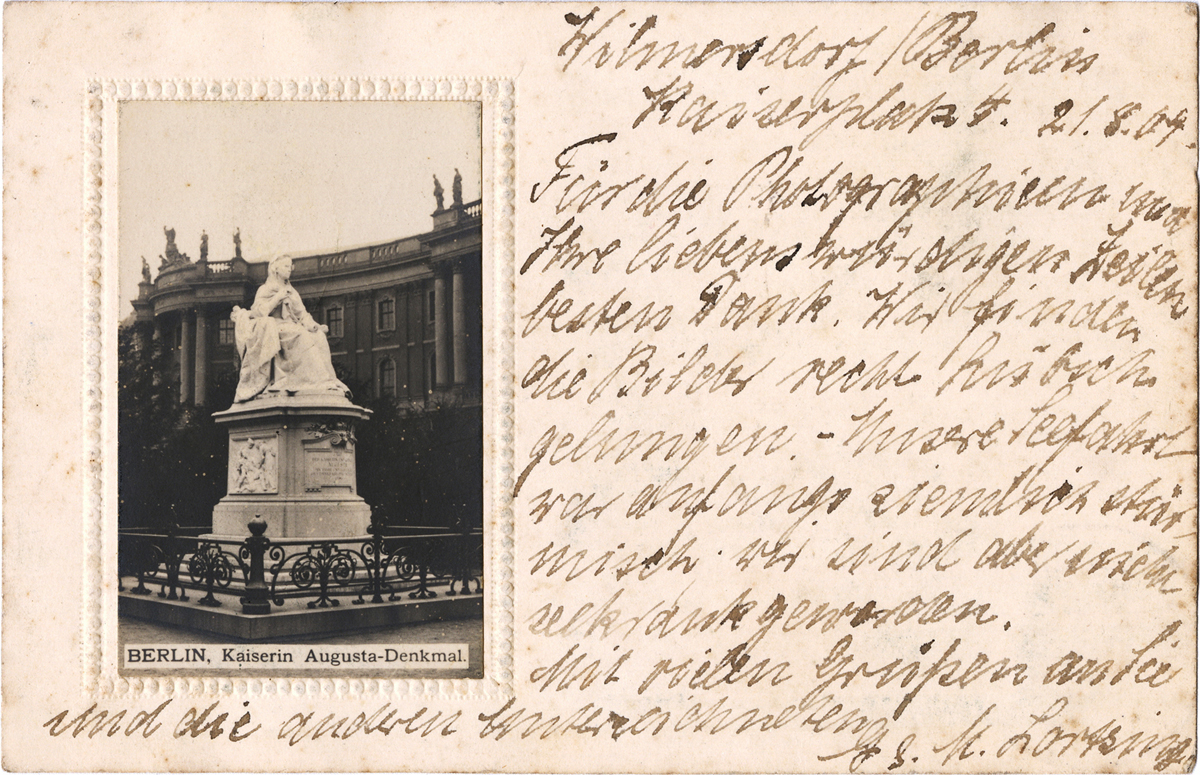 Wilmersdorf / Berlin
Kaiserplatz 4. 21.8.09.
Für die Photographieen und
Ihre liebenswürdigen Zeilen
besten Dank. Wir finden
die Bilder recht hübsch
gelungen. - Unsere Seefahrt
war anfangs ziemlich stür
misch. wir sind aber nicht
seekrank geworden.
Mit vielen Grüßen an Sie
und die anderen Unterzeichneten
M. Lortzing
BERLIN, Kaiserin Augusta-Denkmal.